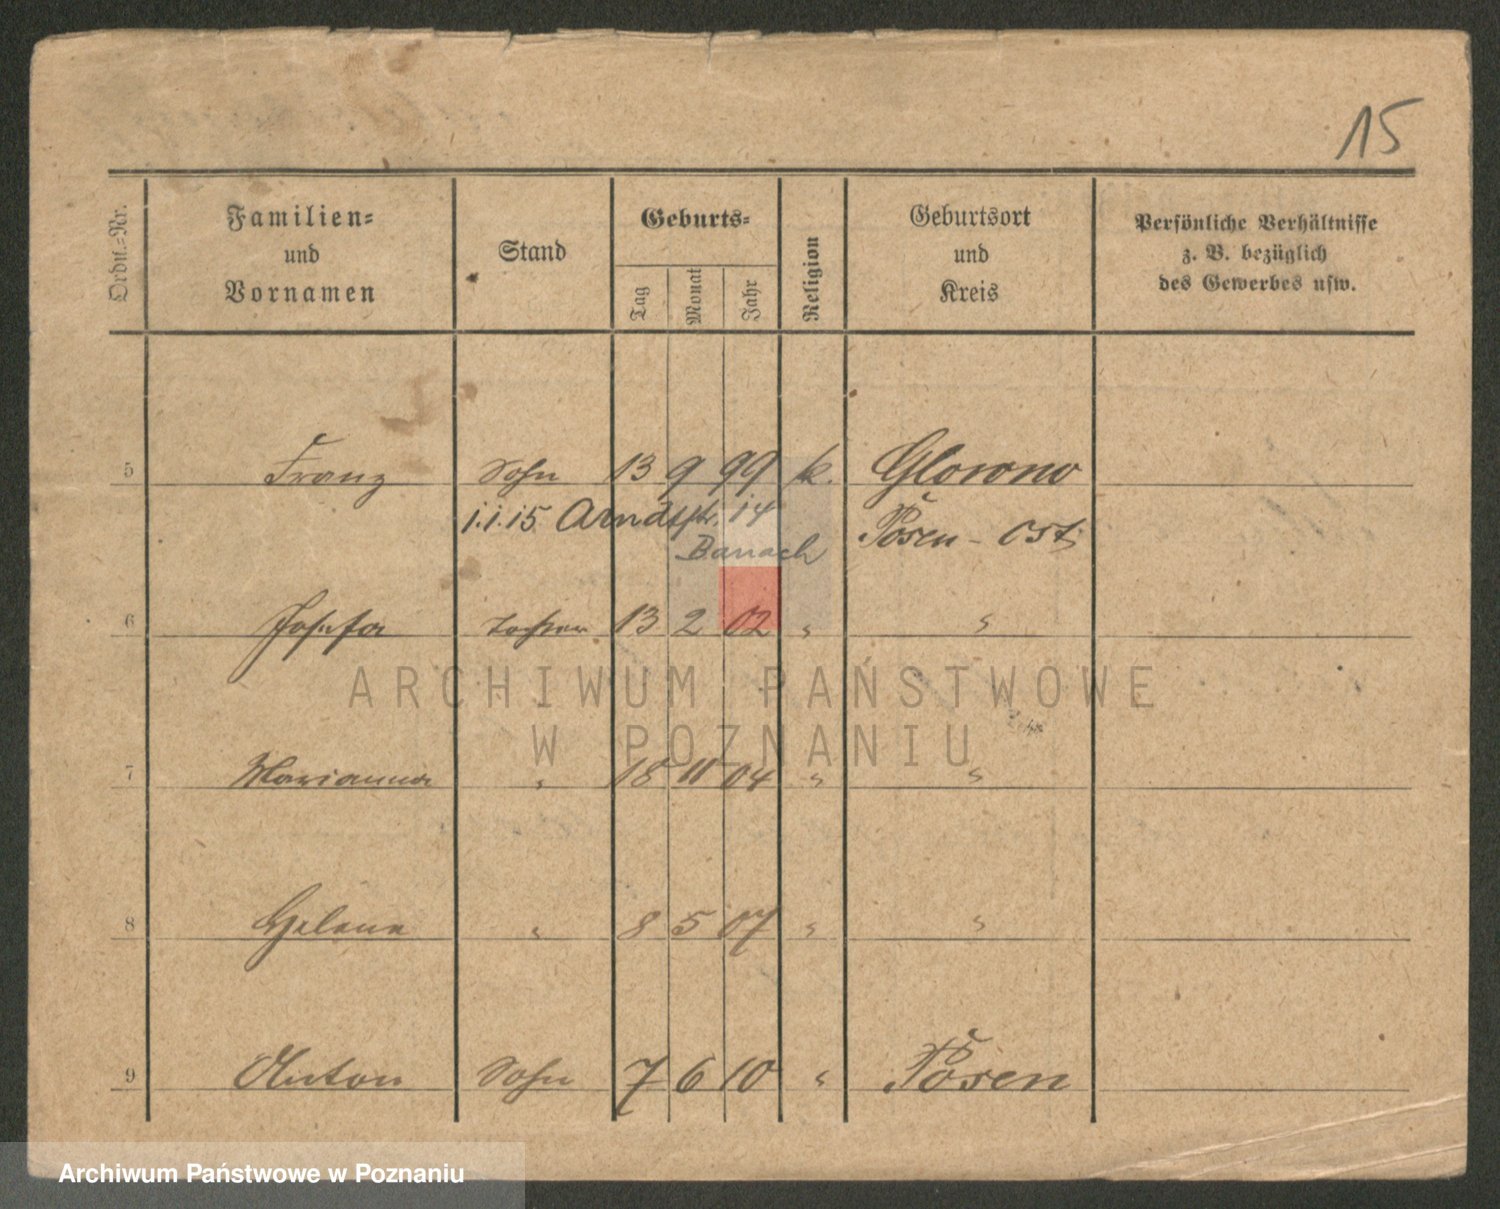 15
Ordn.=Nr.
Familien=
und
Vornamen
Stand
Geburts=
Tag
Monat
Jahr
Religion
Geburtsort
und
Kreis
Persönliche Verhältnisse
z. B. bezüglich
des Gewerbes usw.
5 Franz Sohn 13 9 99 k. Glowno
1.1.15 Arndtstr. 14 Posen - Ost
Banach
6 Josefa Tochter 13 2 02 " "
ARCHIWUM PAŃSTWOWE
W POZNANIU
7 Marianna " 18 11 04 " "
8 Helene " 8 5 07 " "
9 Anton Sohn 7 6 10 " Posen
Archiwum Państwowe w Poznaniu